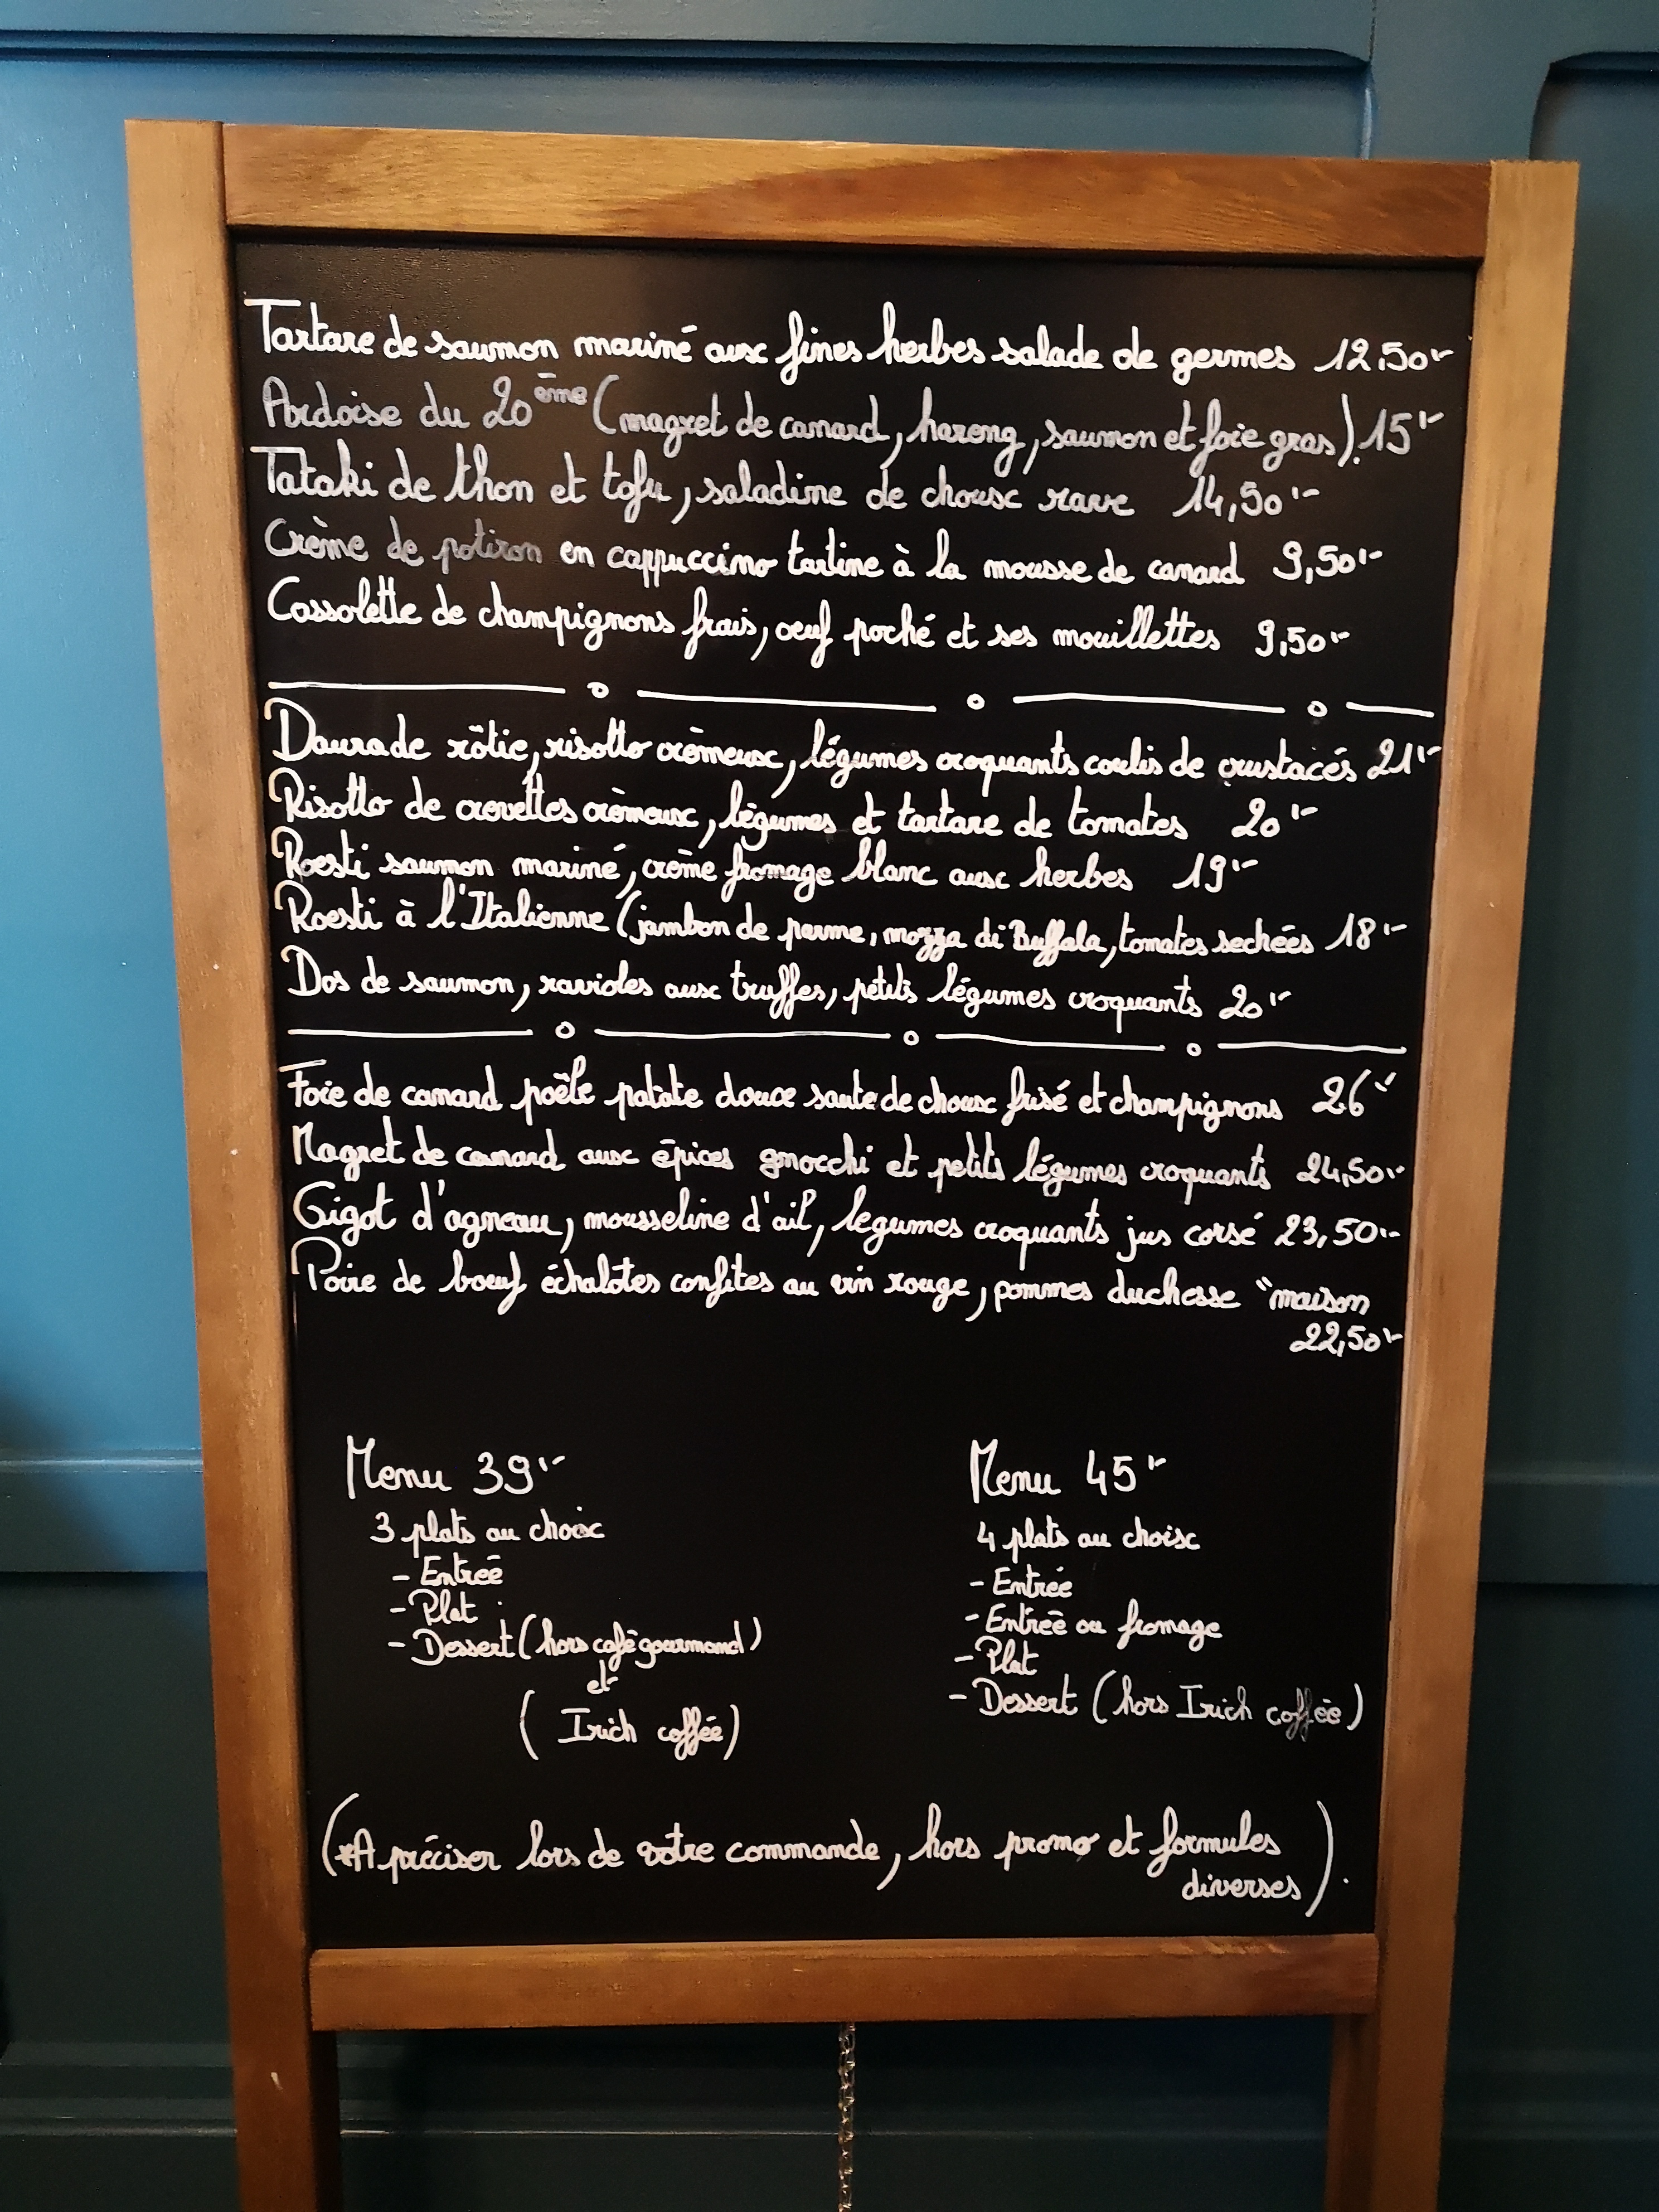 Tartare de saumon mariné aux fines herbes salade de germes 12,50'-
Ardoise du 20ème (magret de canard, hareng, saumon et foie gras). 15'-
Tataki de thon et tofu, saladine de choux rave 14,50'-
Crème de potiron en cappuccino tartine à la mousse de canard 9,50'-
Cassolette de champignons frais, oeuf poché et ses mouillettes 9,50'-
Daurade rôtie, risotto crèmeux, légumes croquants coulis de crustacés 21'-
Risotto de crevettes crèmeux, légumes et tartare de tomates 20'-
Roesti saumon mariné, crème fromage blanc aux herbes 19'-
Roesti à l'Italienne (jambon de parme, mozza di Buffala, tomates sechées 18'-
Dos de saumon, ravioles aux truffes, petits légumes croquants 20'-
Foie de canard poêlé patate douce saute de choux frisé et champignons 26'-
Magret de canard aux épices gnocchi et petits légumes croquants 24,50'-
Gigot d'agneau, mousseline d'ail, legumes croquants jus corsé 23,50'-
Poire de boeuf échalotes confites au vin rouge, pommes duchesse "maison
22,50'-
Menu 39'-
3 plats au choix
- Entrée
- Plat
- Dessert (hors café gourmand)
et
(Irich coffée)
Menu 45'-
4 plats au choix
- Entrée
- Entrée ou fromage
- Plat
- Dessert (hors Irich coffée)
(*A préciser lors de votre commande, hors promo et formules
diverses).